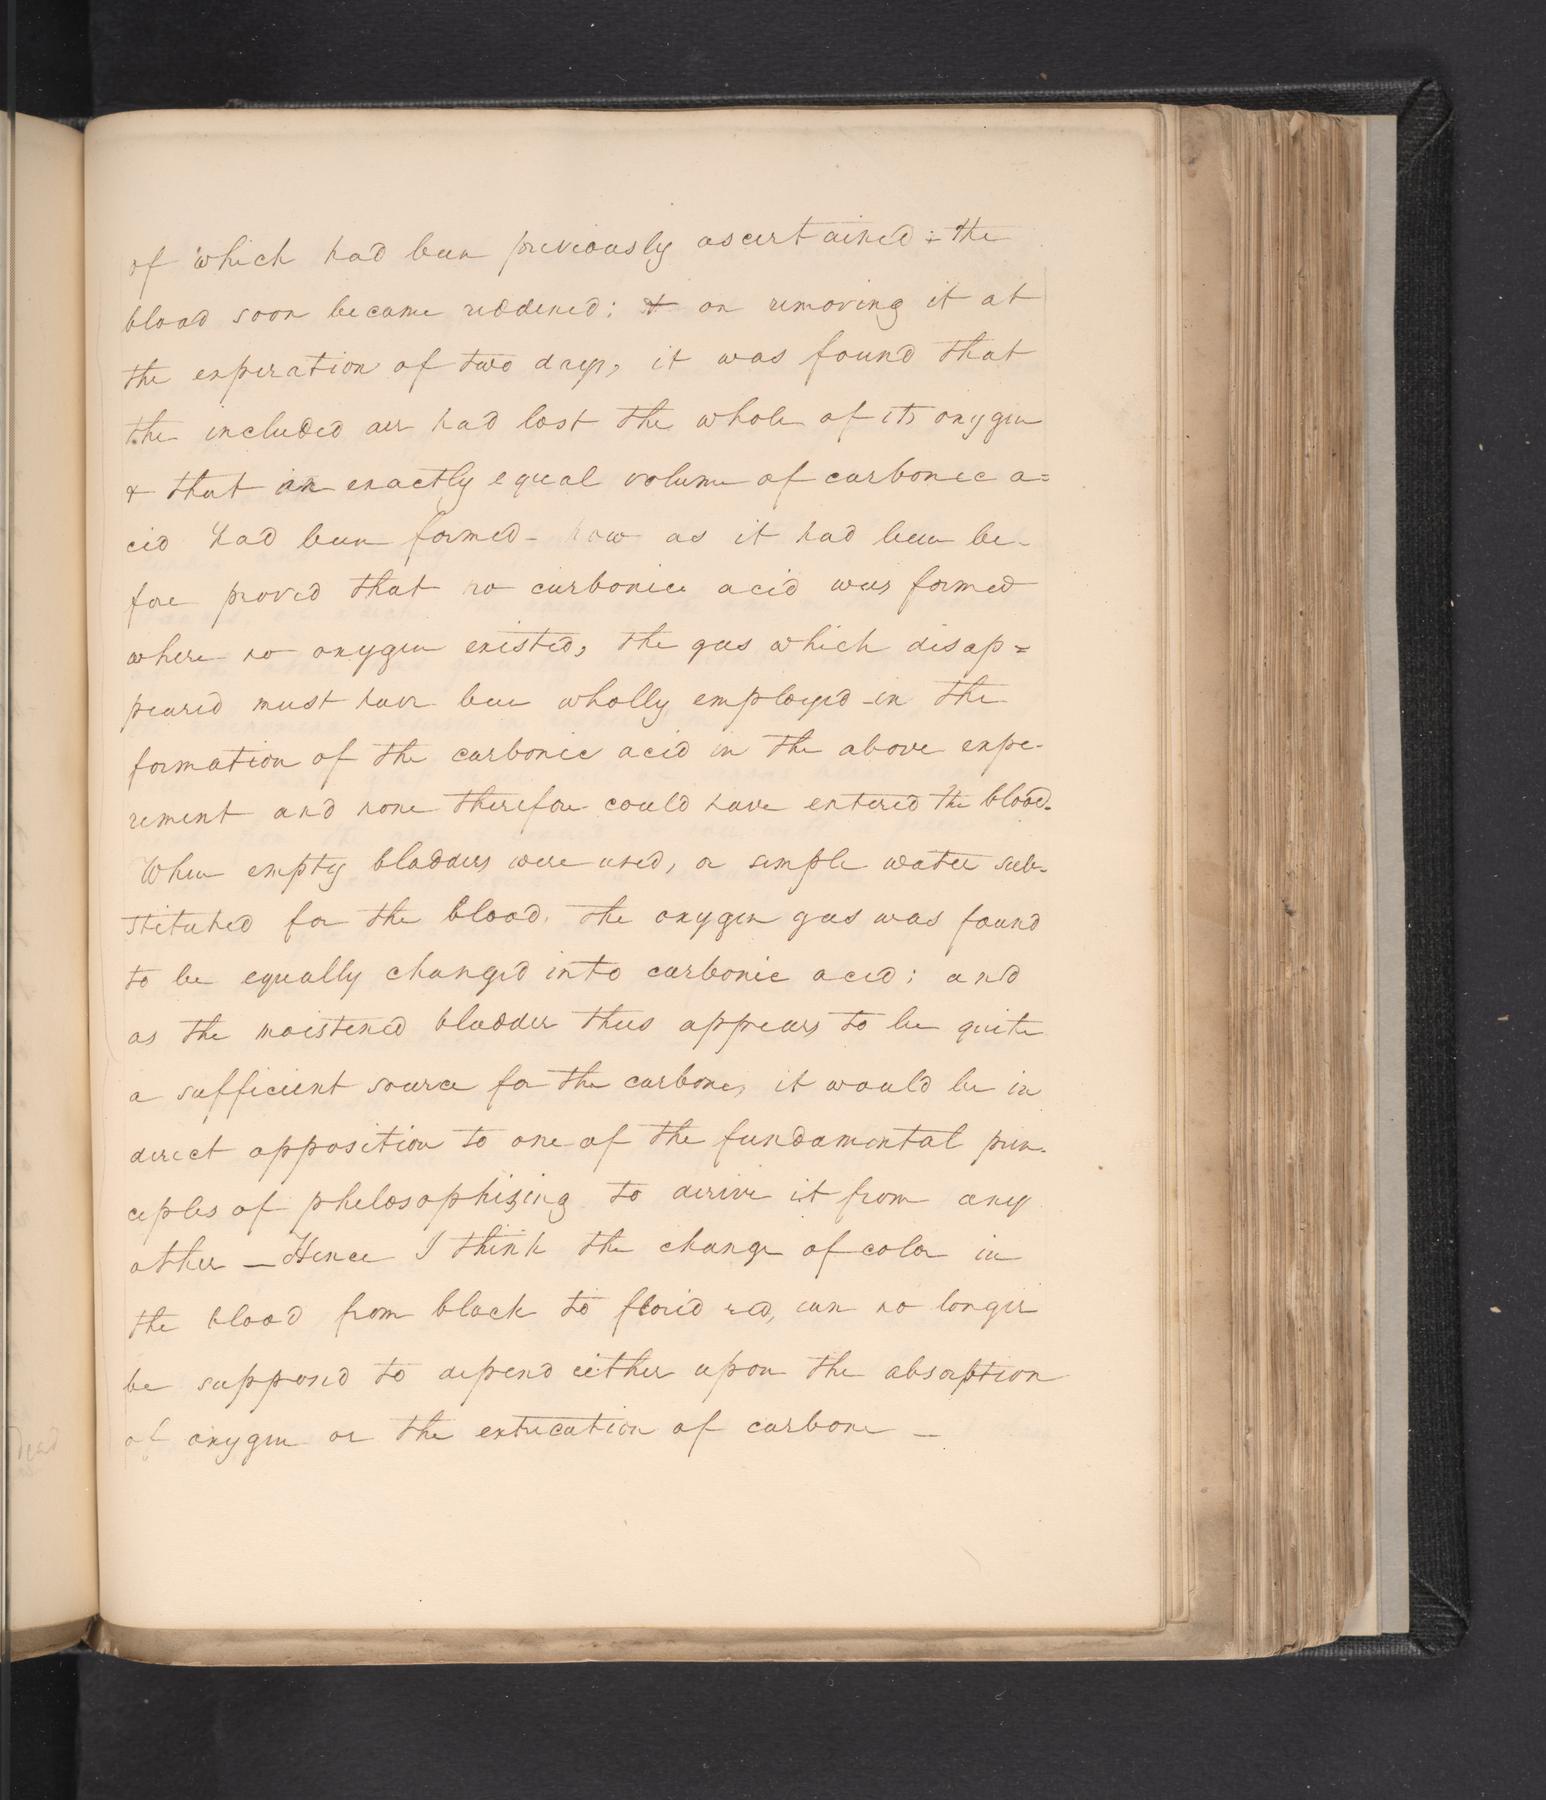 of which had been previously ascertained; the
blood soon became reddened; & on removing it at
the experation of two days, it was found that
the included air had lost the whole of its oxygen
& that an exactly equal volume of carbonic a=
cid had been formed - now as it had been be-
fore proved that no carbonic acid was formed
where no oxygen existed, the gas which disap=
peared must have been wholly employed in the
formation of the carbonic acid in the above expe-
riment and none therefore could have entered the blood.
When empty bladders were used, or simple water sub-
stituted for the blood, the oxygen gas was found
to be equally changed into carbonic acid; and
as the moistened bladder thus appears to be quite
a sufficient source for the carbone, it would be in
direct opposition to one of the fundamental prin-
ciples of philosophizing to derive it from any
other — Hence I think the change of color in
the blood from black to florid red, can no longer
be supposed to depend either upon the absorption
of oxygen or the extrication of carbone —